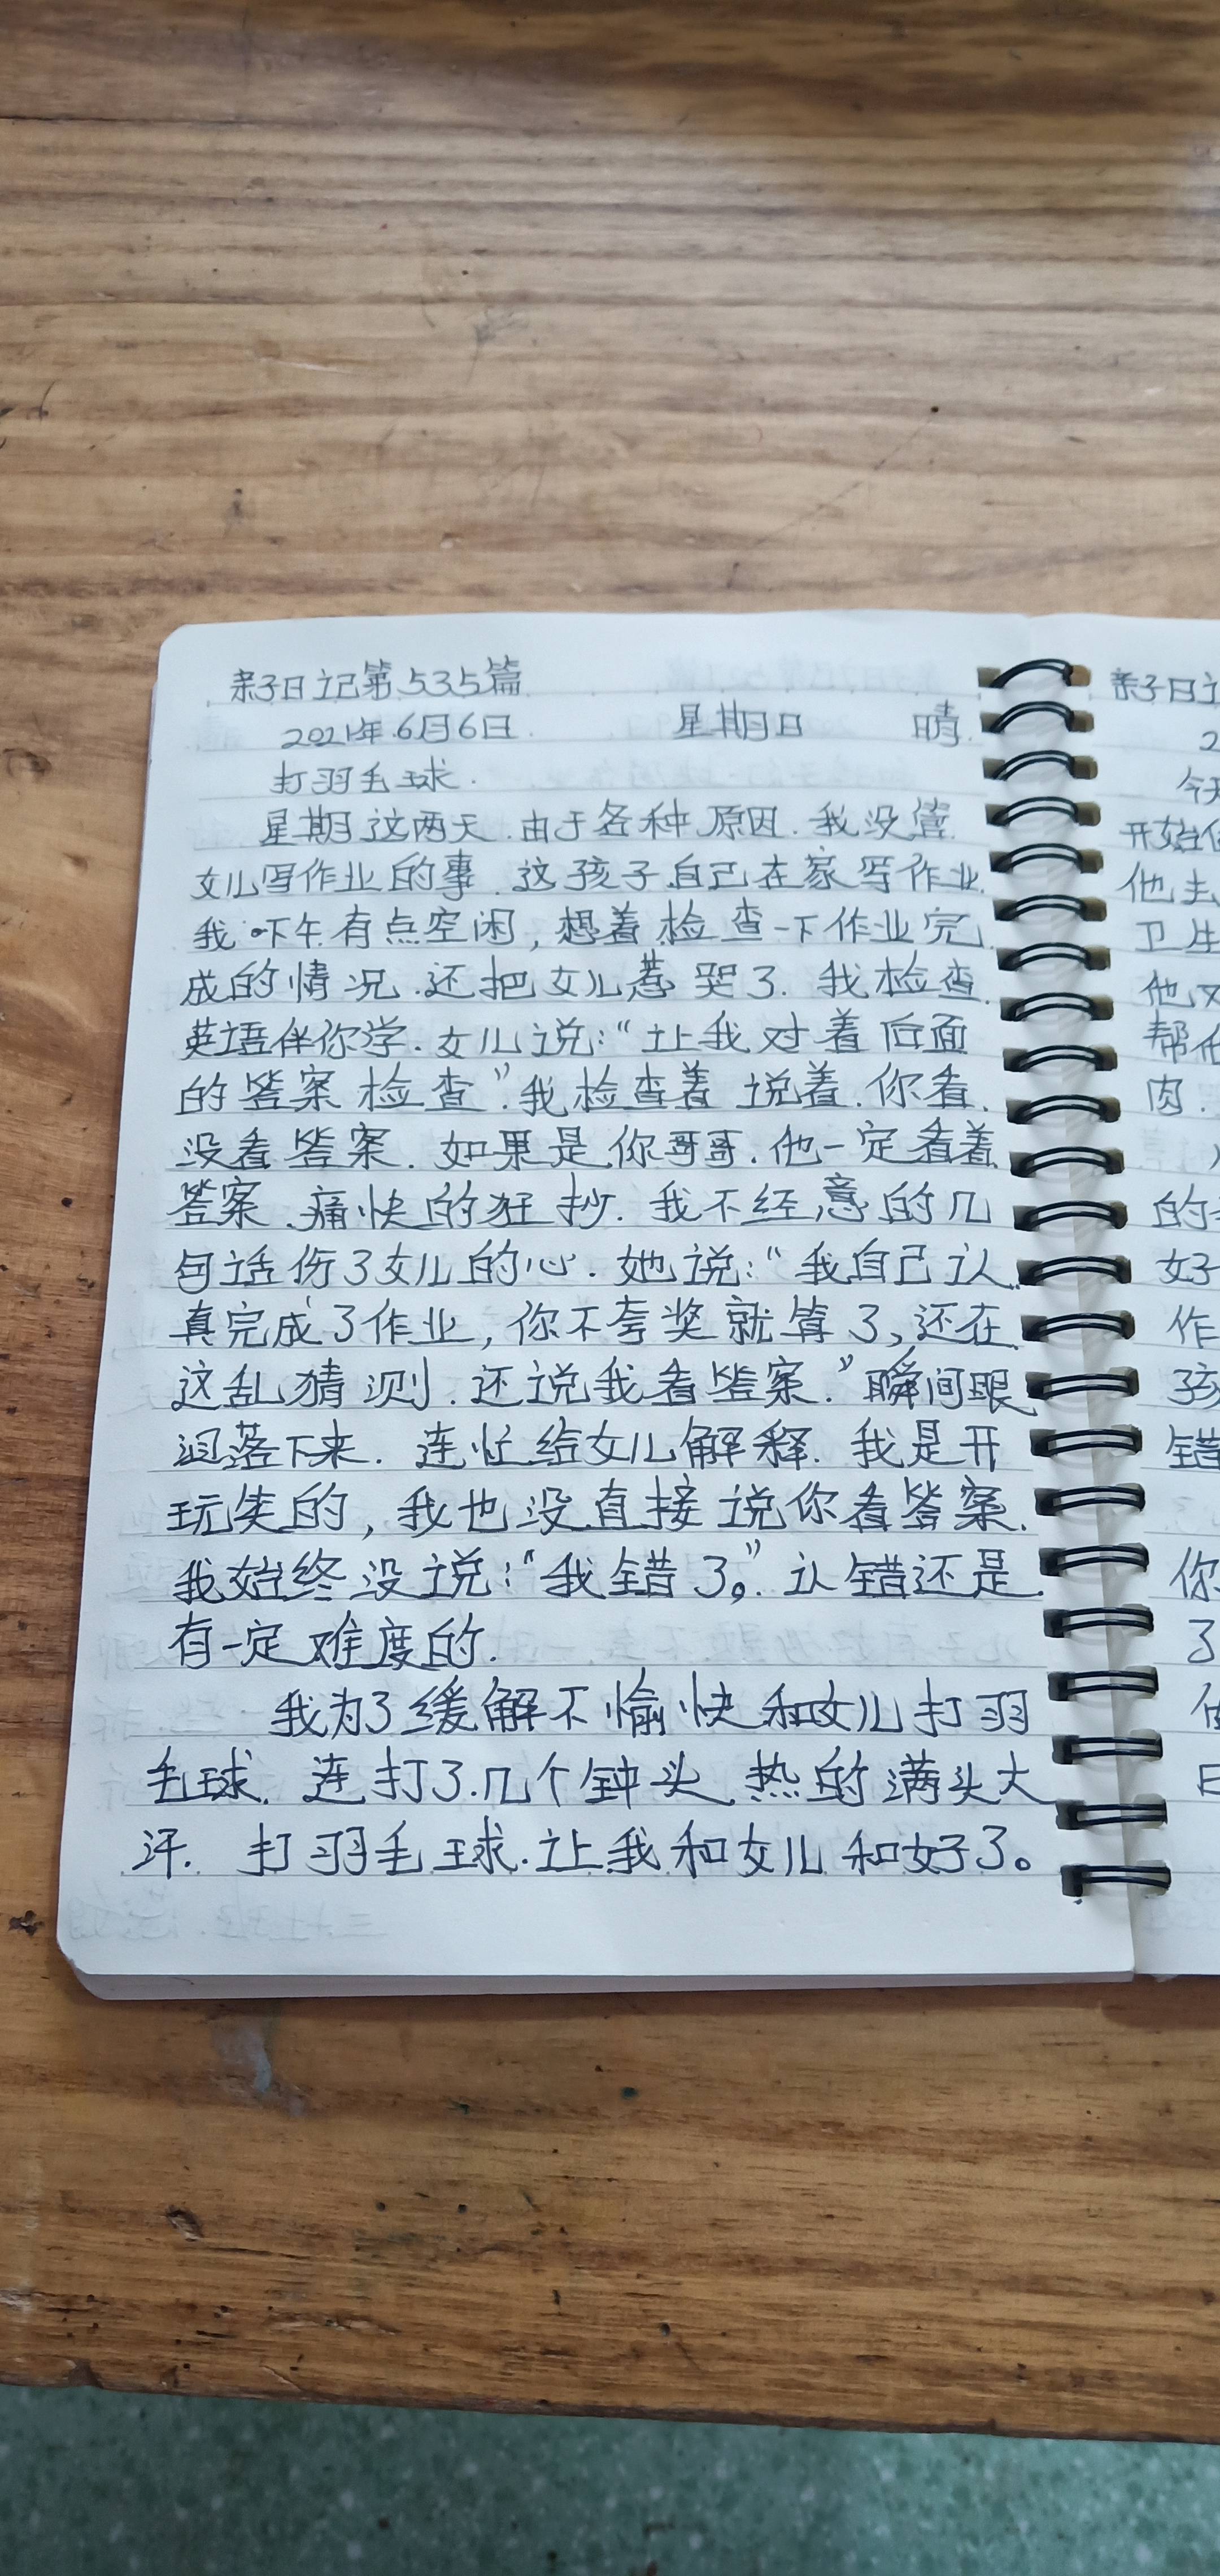 亲子日记第535篇
2021年6月6日 星期日 晴
打羽毛球.
星期这两天.由于各种原因.我没管
女儿写作业的事.这孩子自己在家写作业.
我下午有点空闲,想着检查一下作业完
成的情况.还把女儿惹哭了.我检查
英语伴你学.女儿说:“让我对着后面
的答案检查”.我检查着说着.你看.
没看答案.如果是你哥哥.他一定看着
答案.痛快的狂抄.我不经意的几
句话伤了女儿的心.她说:“我自己认
真完成了作业,你不夸奖就算了,还在
这乱猜测.还说我看答案.”瞬间眼
泪落下来.连忙给女儿解释.我是开
玩笑的,我也没直接说你看答案.
我始终没说:“我错了。”认错还是
有一定难度的.
我为了缓解不愉快和女儿打羽
毛球.连打了几个钟头.热的满头大
汗.打羽毛球.让我和女儿和好了。
亲子日记
2
今天
开始
他
卫生
他又
帮他
肉.
的
好
作
孩
错
你
了
日